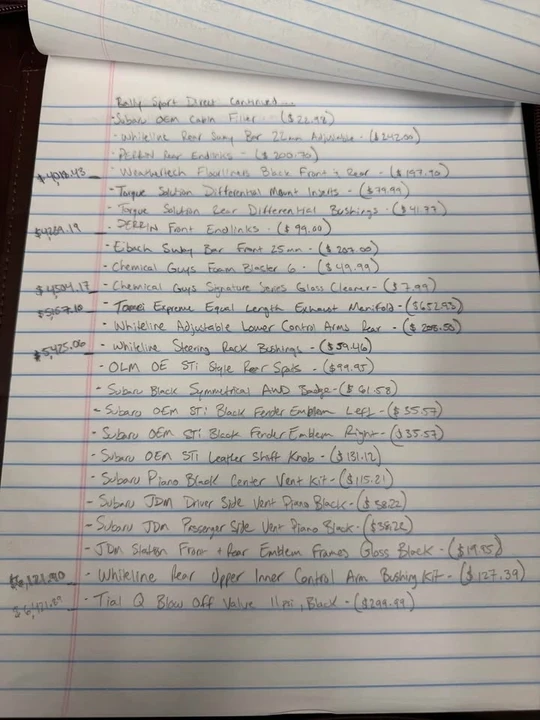 Rally Sport Direct Continued...
-Subaru OEM Cabin Filter - ($22.98)
-Whiteline Rear Sway Bar 22mm Adjustable - ($242.00)
-PERRIN Rear Endlinks - ($200.70)
$4,018.43 - Weathertech Floorliners Black Front + Rear - ($197.90)
-Torque Solution Differential Mount Inserts - ($79.99)
- Torque Solution Rear Differential Bushings - ($41.77)
$4239.19 - PERRIN Front Endlinks - ($99.00)
- Eibach Sway Bar Front 25mm - ($207.00)
- Chemical Guys Foam Blaster 6 - ($49.99)
$4,504.17 - Chemical Guys Signature Series Glass Cleaner - ($7.99)
$5157.10 - Tomei Expreme Equal Length Exhaust Manifold - ($652.93)
- Whiteline Adjustable Lower Control Arms Rear - ($208.50)
$5,425.06 - Whiteline Steering Rack Bushings - ($59.46)
- OLM OE STi Style Rear Spats - ($99.95)
- Subaru Black Symmetrical AWD Badge - ($61.58)
- Subaru OEM STi Black Fender Emblem Left - ($35.57)
- Subaru OEM STi Black Fender Emblem Right - ($35.57)
- Subaru OEM STi Leather Shift Knob - ($131.12)
- Subaru Piano Black Center Vent Kit - ($115.21)
- Subaru JDM Driver Side Vent Piano Black - ($38.22)
- Subaru JDM Passenger Side Vent Piano Black - ($38.22)
- JDM Station Front + Rear Emblem Frames Gloss Black - ($19.95)
$6,121.90 - Whiteline Rear Upper Inner Control Arm Bushing Kit - ($127.39)
- Tial Q Blow Off Valve 11psi, Black - ($299.99)